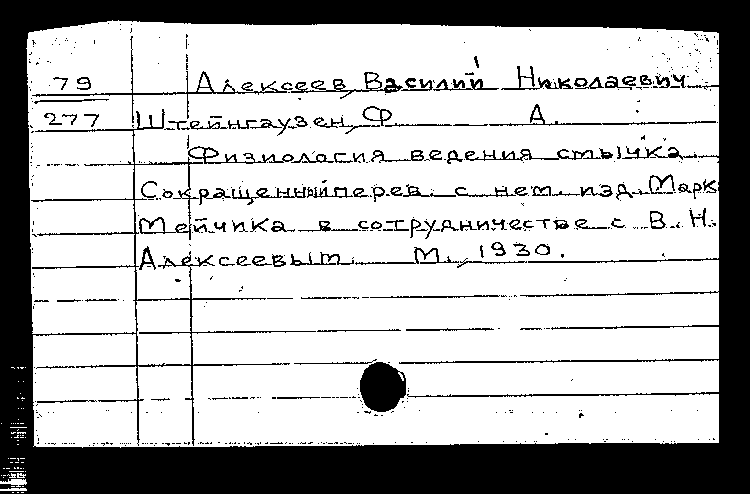 79 Алексеев, Василий Николаевич
277 Штейнгаузен, Ф. А.
Физиология ведения смычка.
Сокращенный перев. с нем. изд. Марк
Мейчика в сотрудничестве с В. Н.
Алексеевым. М., 1930.